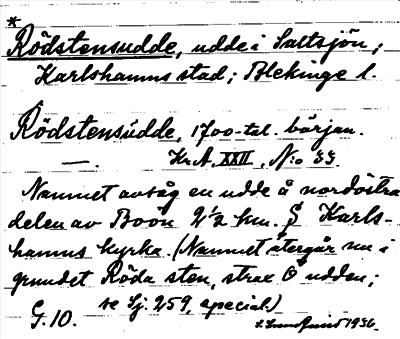 *
Rödstensudde, udde i Saltsjön;
Karlshamns stad; Blekinge l.
Rödstensudde, 1700-tal. början.
— . Kr.A. XXII, N:o 33.
Namnet avsåg en udde å nordöstra
delen av Boön 2½ km. S Karls-
hamns kyrka. (Namnet återgår nu i
grundet Röda sten, strax O udden;
G. 10. se Sj. 259, special.)
1936